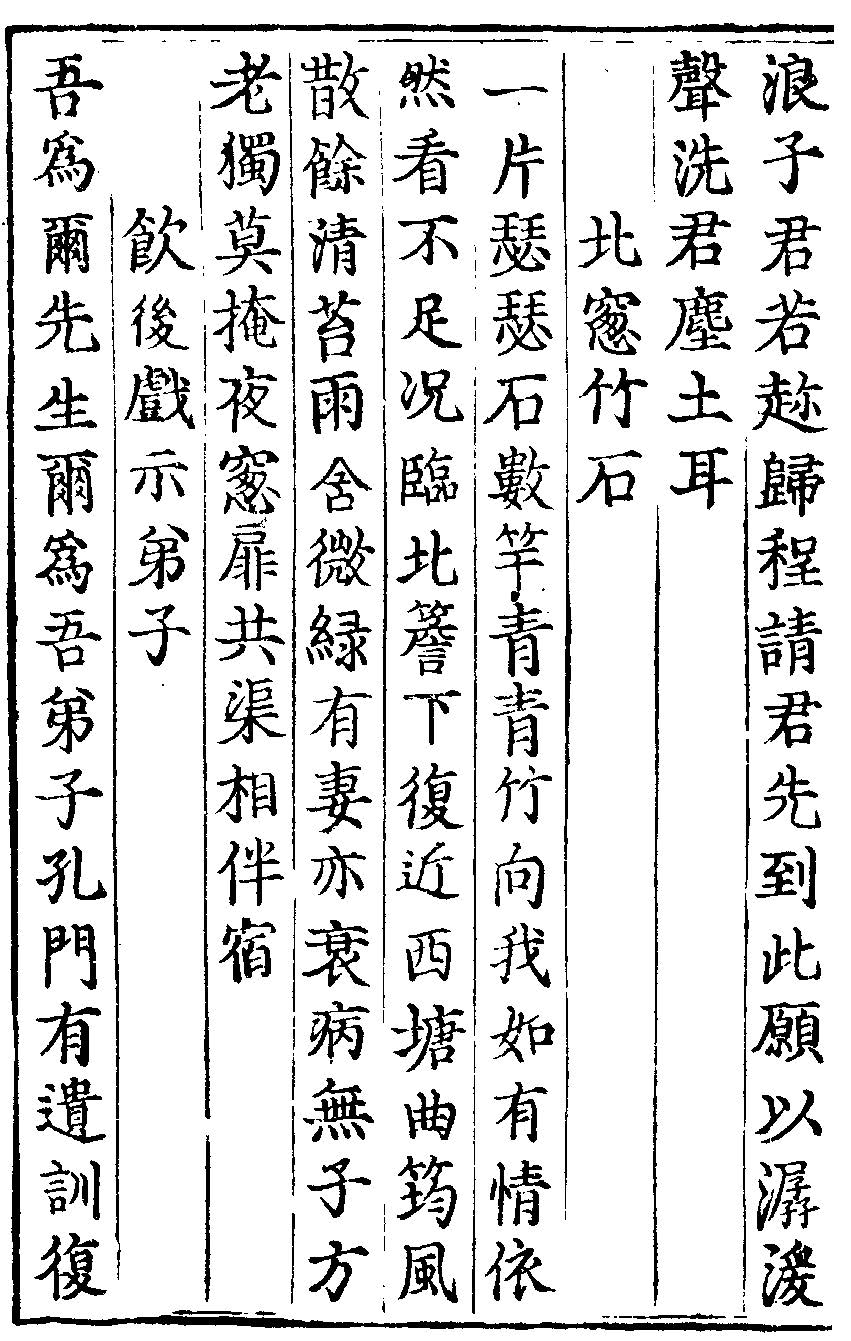 浪子君若趂歸程請君先到此願以潺湲
聲洗君塵土耳
北窓竹石
一片瑟瑟石數竿青青竹向我如有情依
然看不足况臨北簷下復近西塘曲筠風
散餘清苔雨含微緑有妻亦衰病無子方
老獨莫掩夜窓扉共渠相伴宿
飲後戲示弟子
吾爲爾先生爾爲吾弟子孔門有遺訓復